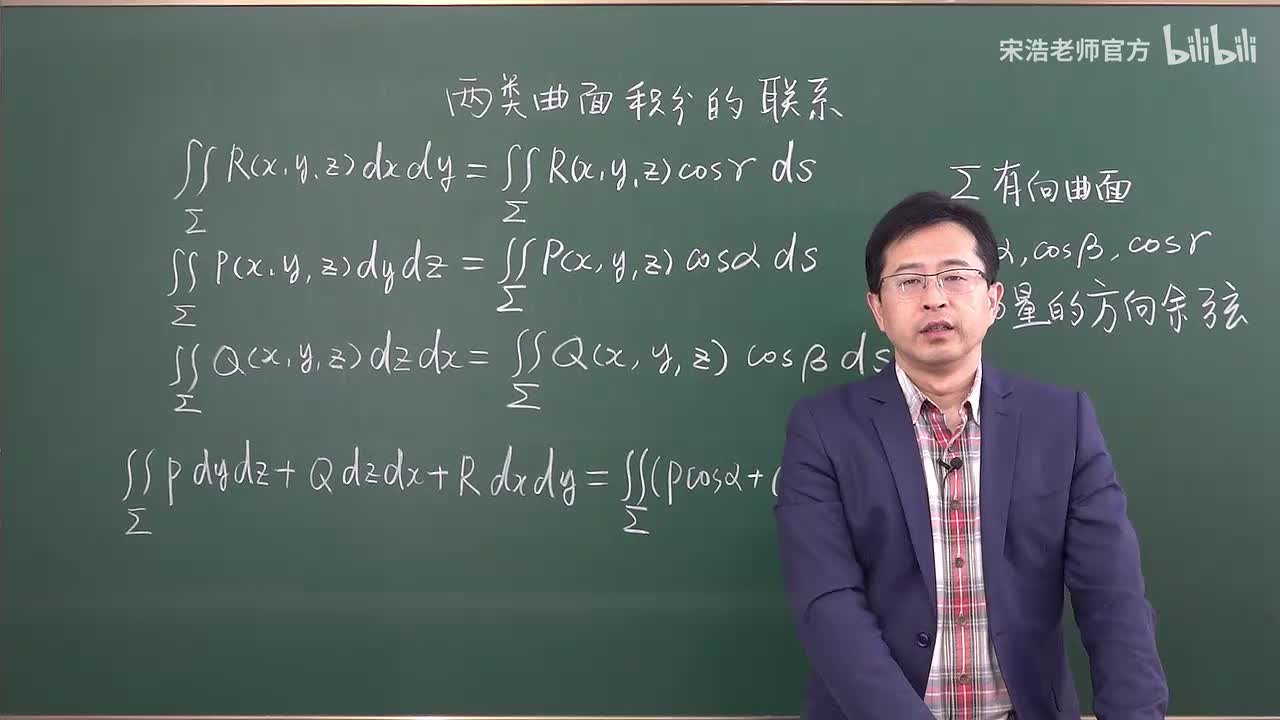 宋浩老师官方 bilibili
两类曲面积分的联系
∬_Σ R(x,y,z)dxdy = ∬_Σ R(x,y,z)cosγ ds
∬_Σ P(x,y,z)dydz = ∬_Σ P(x,y,z)cosα ds
∬_Σ Q(x,y,z)dzdx = ∬_Σ Q(x,y,z)cosβ ds
∬_Σ Pdydz+Qdzdx+Rdxdy = ∬_Σ (Pcosα+
Σ有向曲面
α,cosβ,cosγ
量的方向余弦